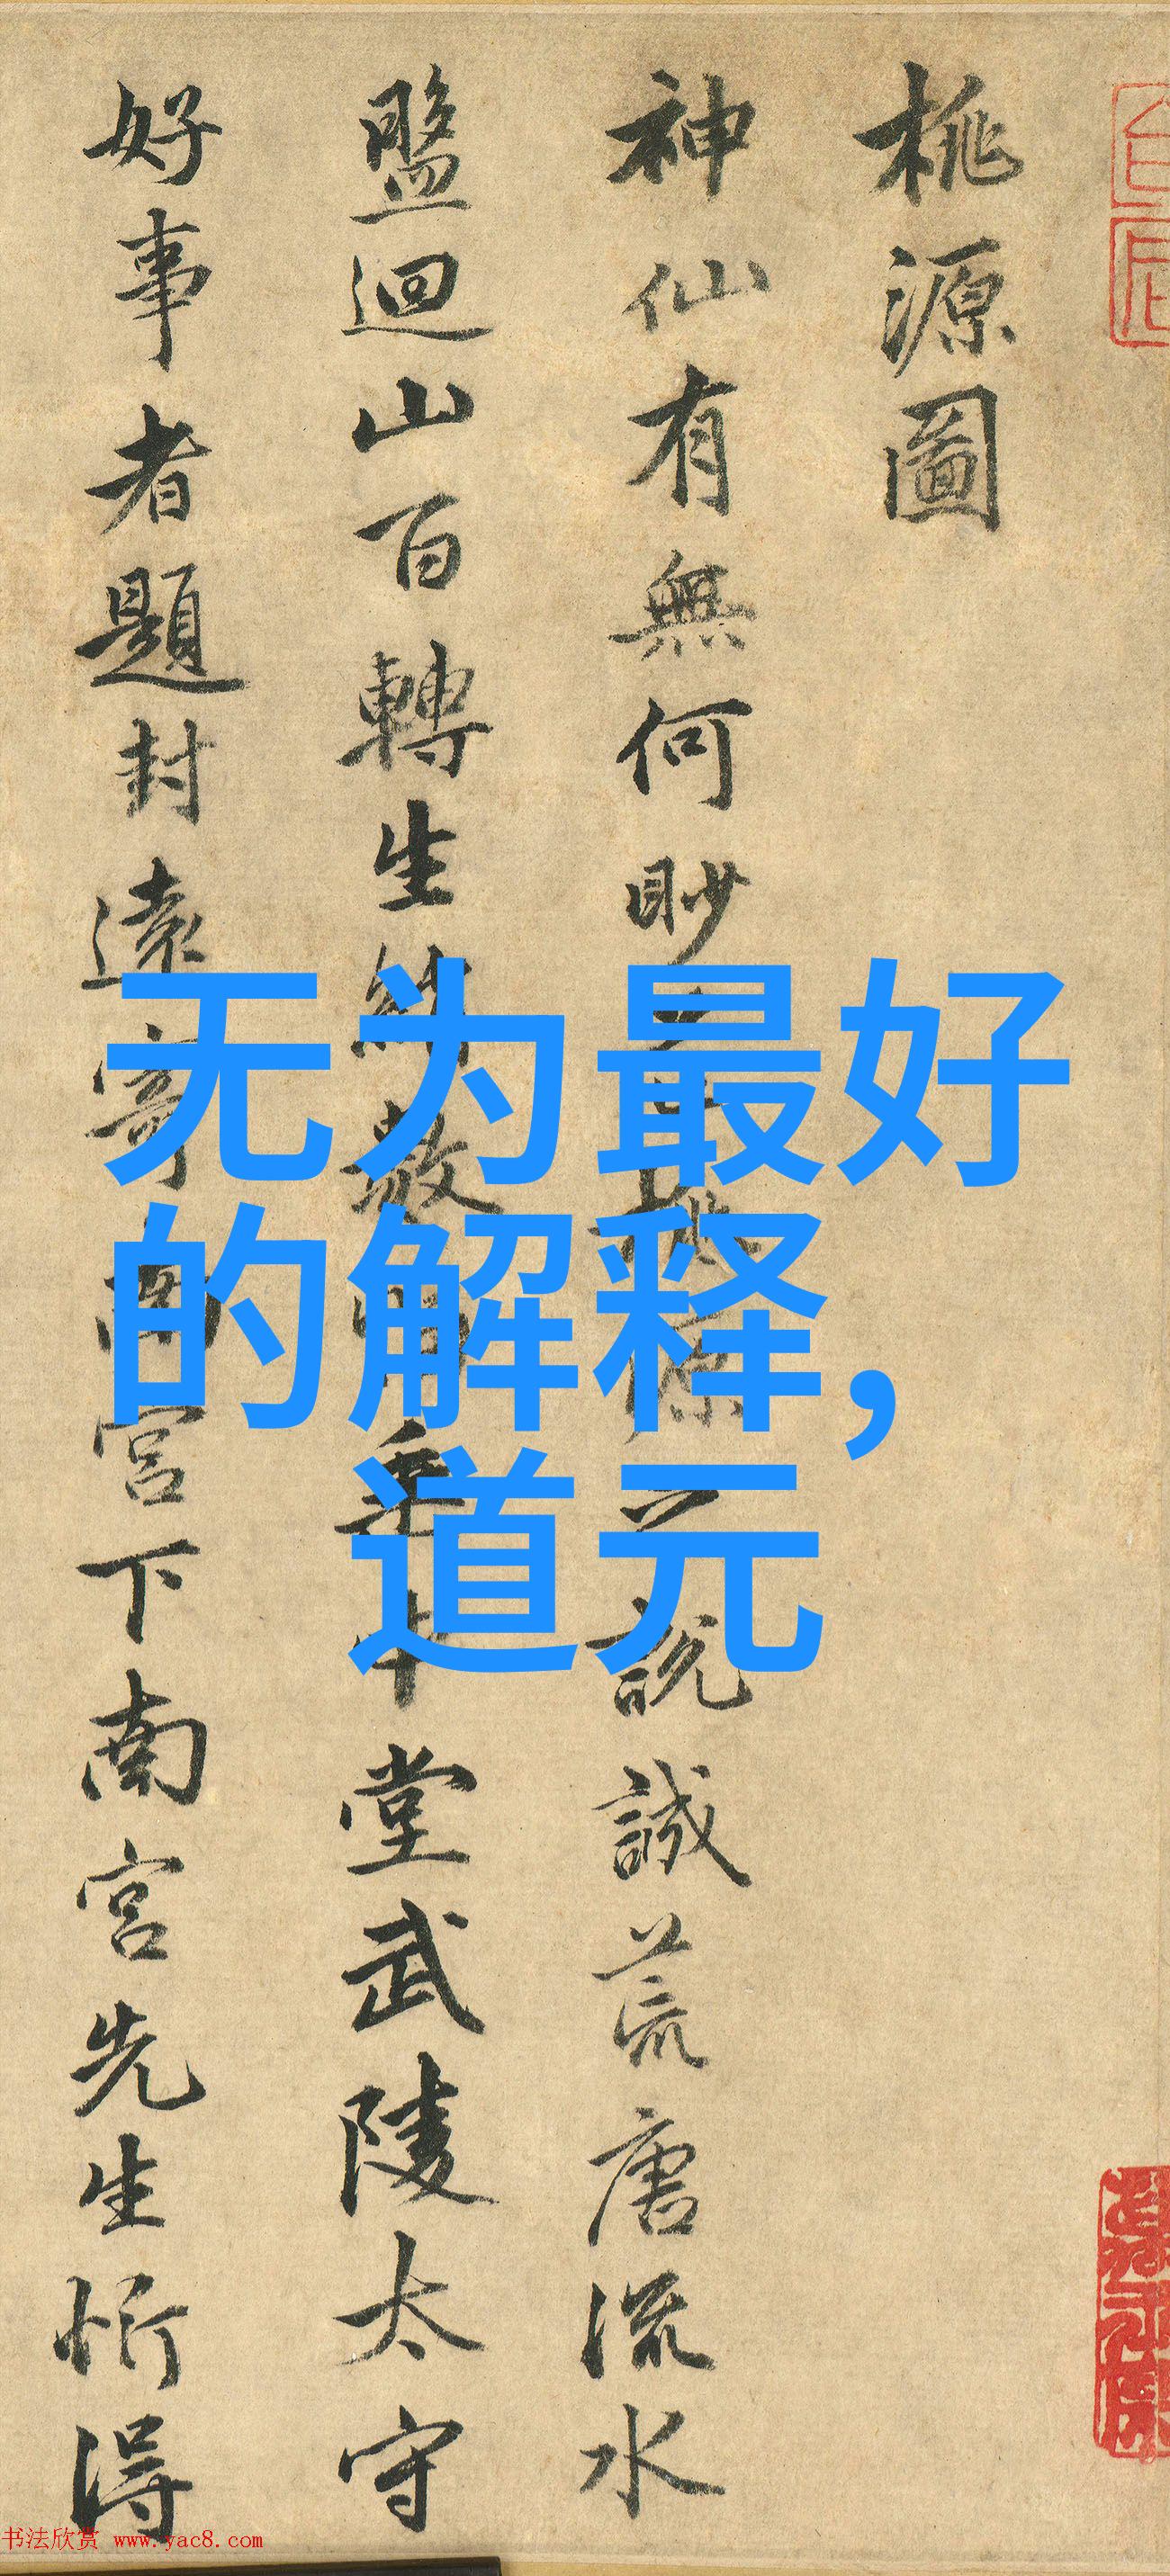 桃源圖
神仙有無何眇 說誠荒唐流水
盤迴山百轉生綃數 垂中堂武陵太守
好事者題封遠寄南宮下南宮先生忻得
无为最好
的解释，
道元
书法欣赏 www.yac8.com